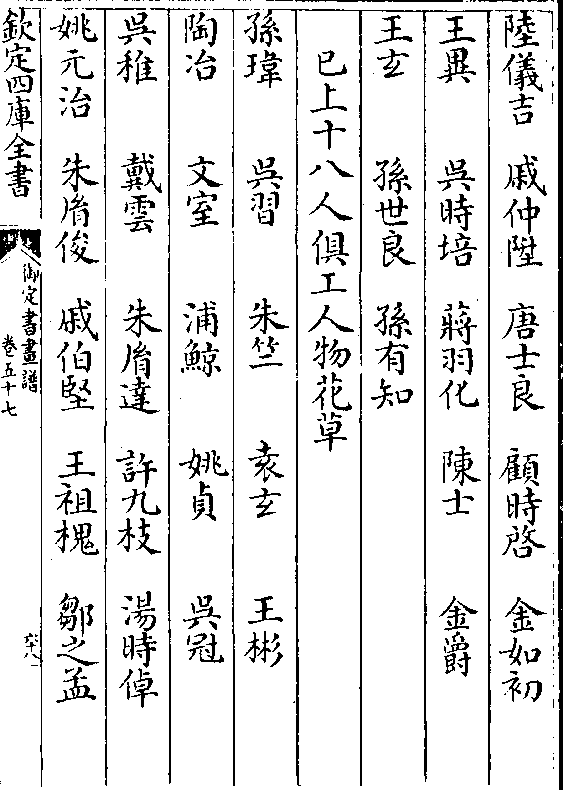 陸儀吉　戚仲陞　唐士良　顧時啓　金如初
王異　吳時培　蔣羽化　陳士　金爵
王玄　孫世良　孫有知
已上十八人俱工人物花草
孫瑋　吳習　朱竺　袁玄　王彬
陶冶　文室　浦鯨　姚貞　吳冠
吳稚　戴雲　朱㣧達　許九枝　湯時倬
姚元治　朱㣧俊　戚伯堅　王祖槐　鄒之孟
欽定四庫全書
御定書畫譜
卷五十七
六十八